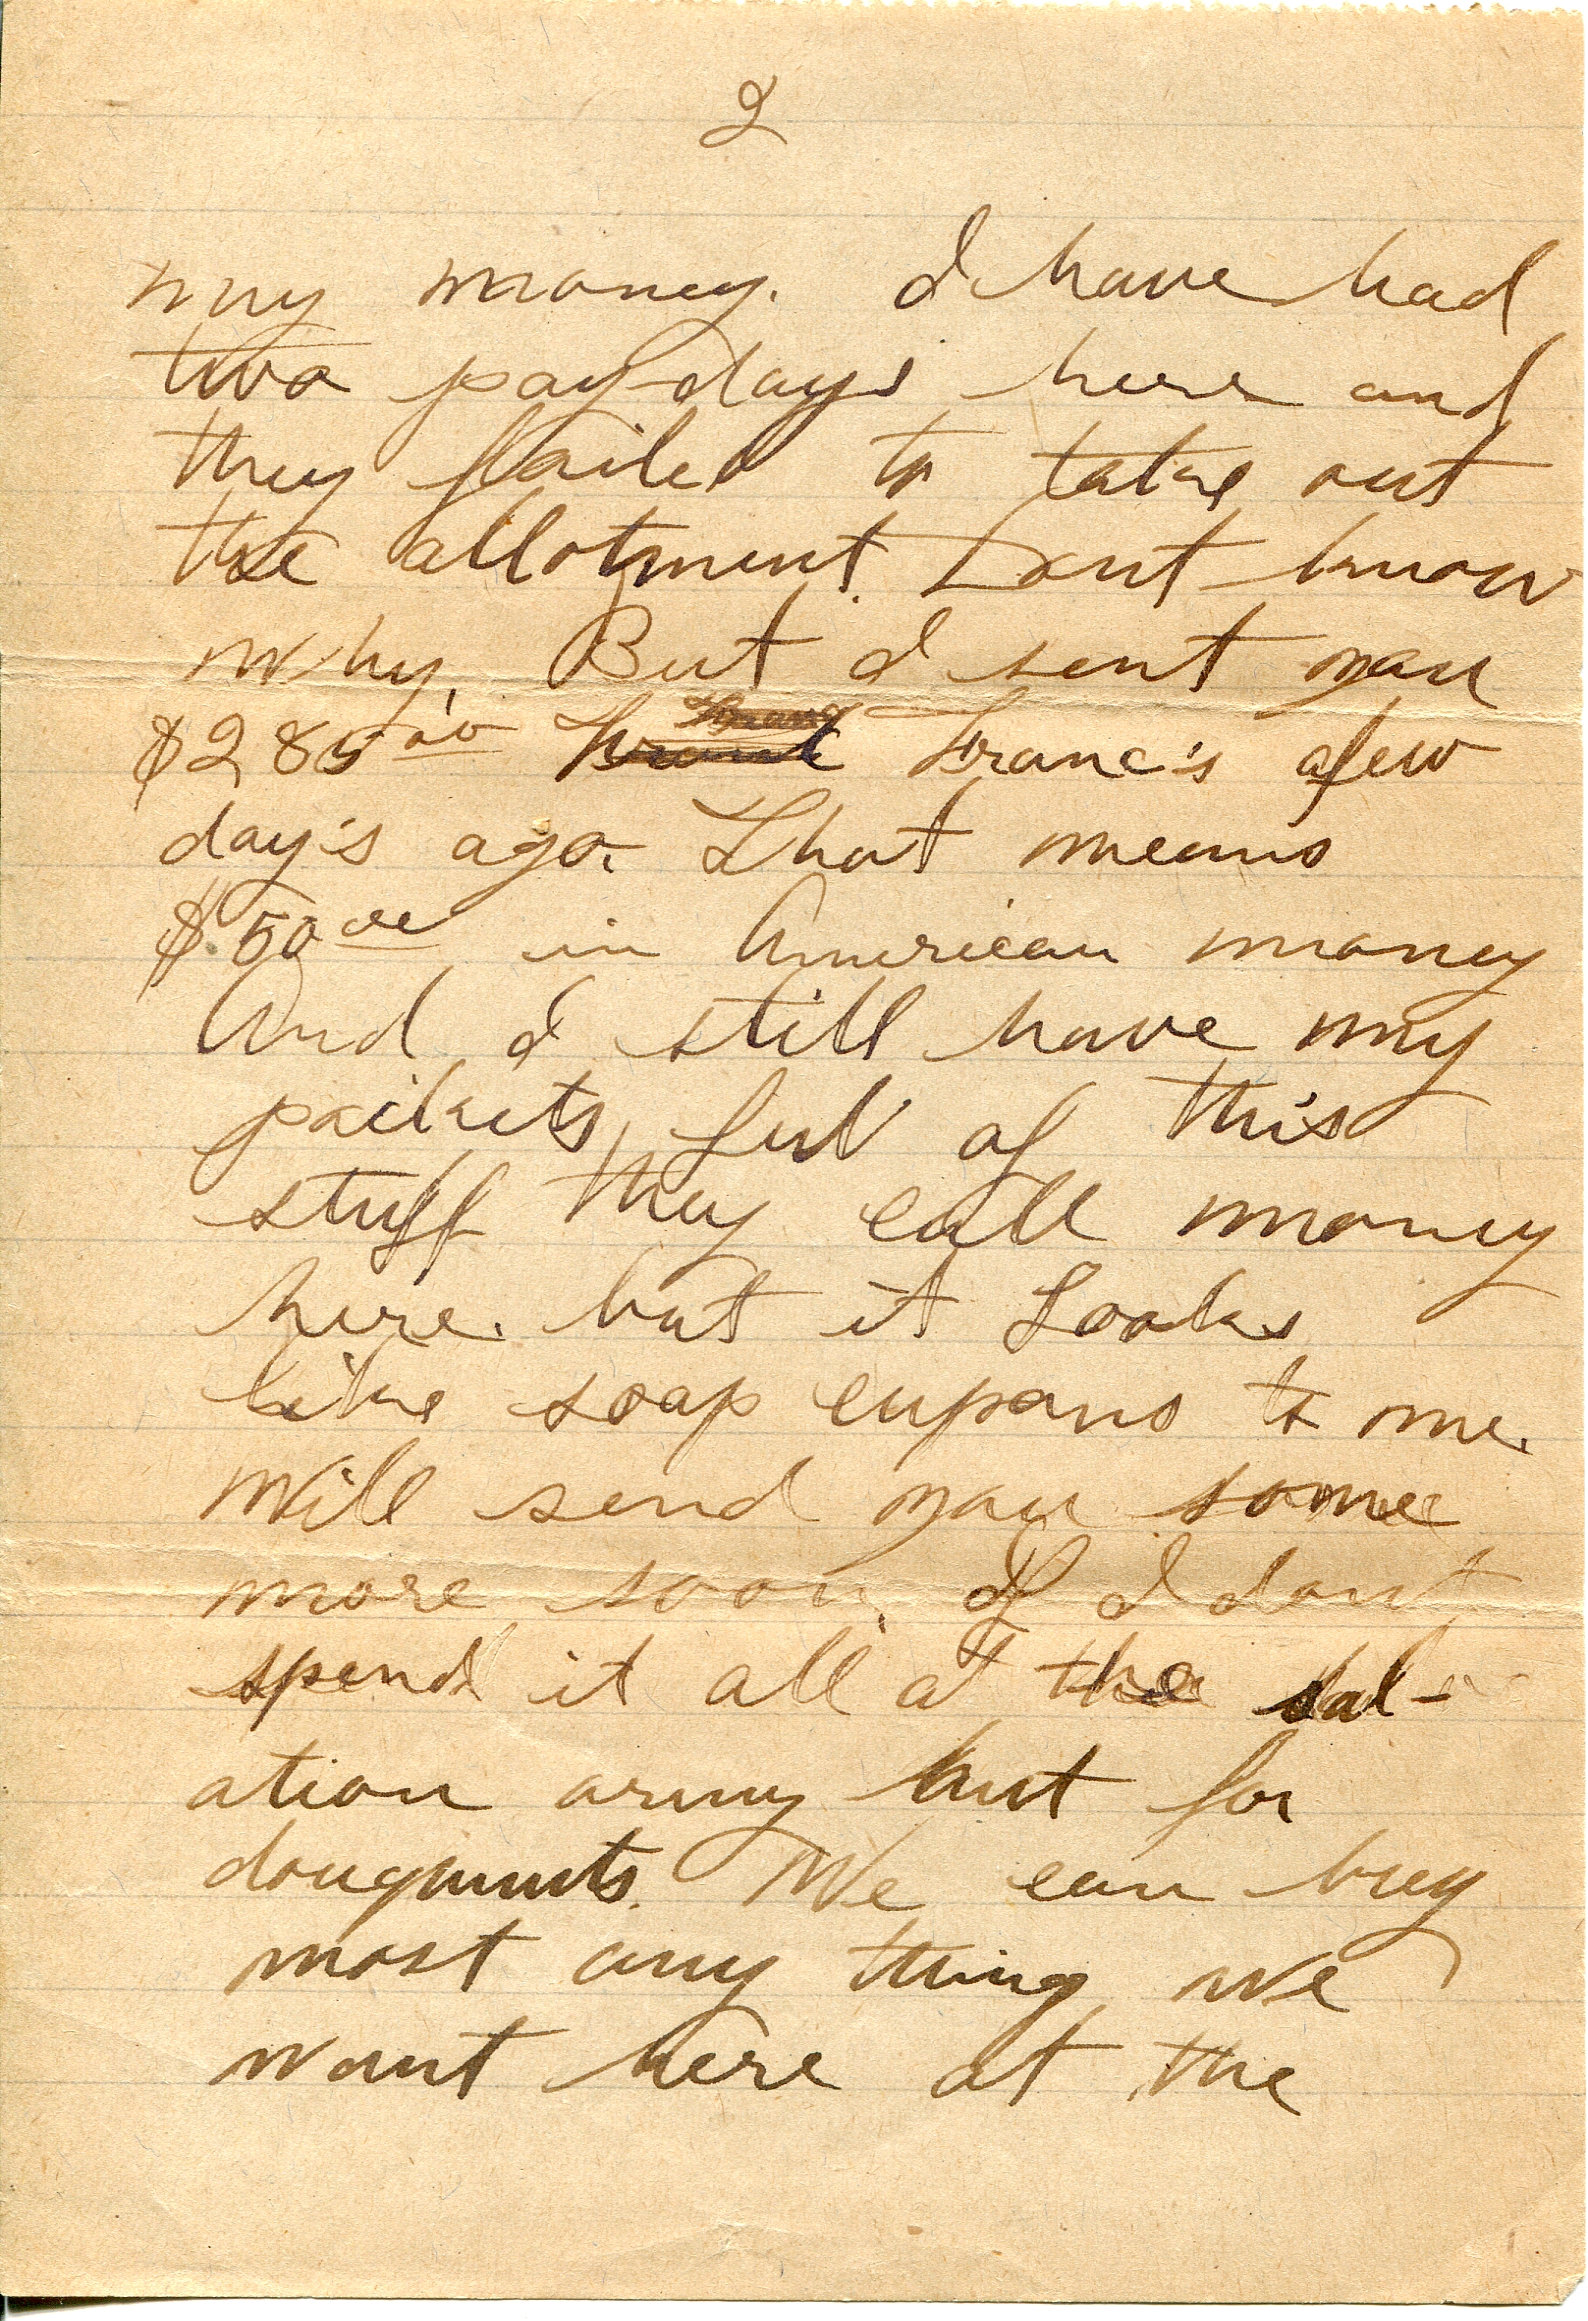 2
my money. I have had
two pay-days here and
they failed to take out
the allotment. Dont know
why. But I sent you
$285.00 Franc's a few
day's ago. That means
$.50.00 in American money
And I still have my
pockets full of this
stuff they call money
here. but it Looks
like soap cupons to me.
Will send you some
more soon. If I dont
spend it all at the sal-
ation army hut for
doughnuts. We can buy
most any thing we
want here at the